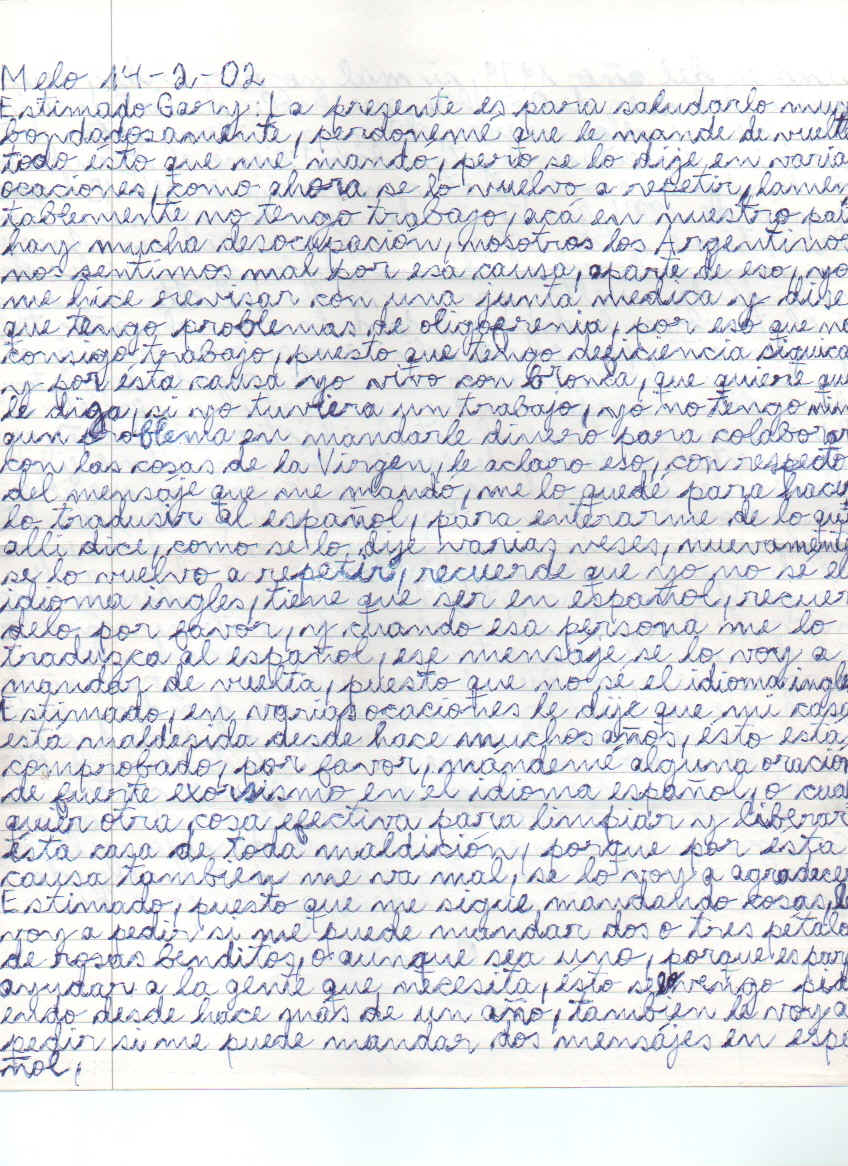 Melo 14-2-02
Estimado Gary: La presente es para saludarlo muy
bondadosamente, perdonéme que le mande de vuelta
todo ésto que me mandó, pero se lo dije en varia
ocaciones, como ahora se lo vuelvo a repetir, lamen
tablemente no tengo trabajo, acá en nuestro país
hay mucha desocupación, nosotros los Argentinos
nos sentimos mal por esa causa, aparte de eso, yo
me hice revisar con una junta medica y dise
que tengo problemas de oligofrenia, por eso que no
consigo trabajo, puesto que tengo deficiencia siquica
y por ésta causa yo vivo con bronca, que quiere que
le diga, si yo tuviera un trabajo, yo no tengo nin
gun problema en mandarle dinero para colaborar
con las cosas de la Virgen, le aclaro eso, con respecto
del mensáje que me mandó, me lo quedé para hacer
lo tradusir al español, para enterarme de lo que
alli dice, como se lo dije varias veses, nuevamente
se lo vuelvo a repetir, recuerde que yo no sé el
idioma ingles, tiene que ser en español, recuer
delo por favor, y cuando esa persona me lo
tradusca al español, ese mensáje se lo voy a
mandar de vuelta, puesto que no sé el idioma ingle
Estimado, en varias ocaciones le dije que mi casa
está maldesida desde hace muchos años, ésto está
comprobado, por favor, mandemé alguna oración
de fuerte exorsismo en el idioma español, o cual
quir otra cosa efectiva para limpiar y liberar
ésta casa de toda maldición, porque por esta
causa tambien me va mal, se lo voy a agradecer
Estimado, puesto que me sigue mandando cosas, le
voy a pedir si me puede mandar dos o tres pétalo
de rosas benditos, o aunque sea uno, porque es par
ayudar a la gente que necesita, ésto se lo vengo pid
endo desde hace más de un año, tambien le voy a
pedir si me puede mandar dos mensájes en espa
ñol,